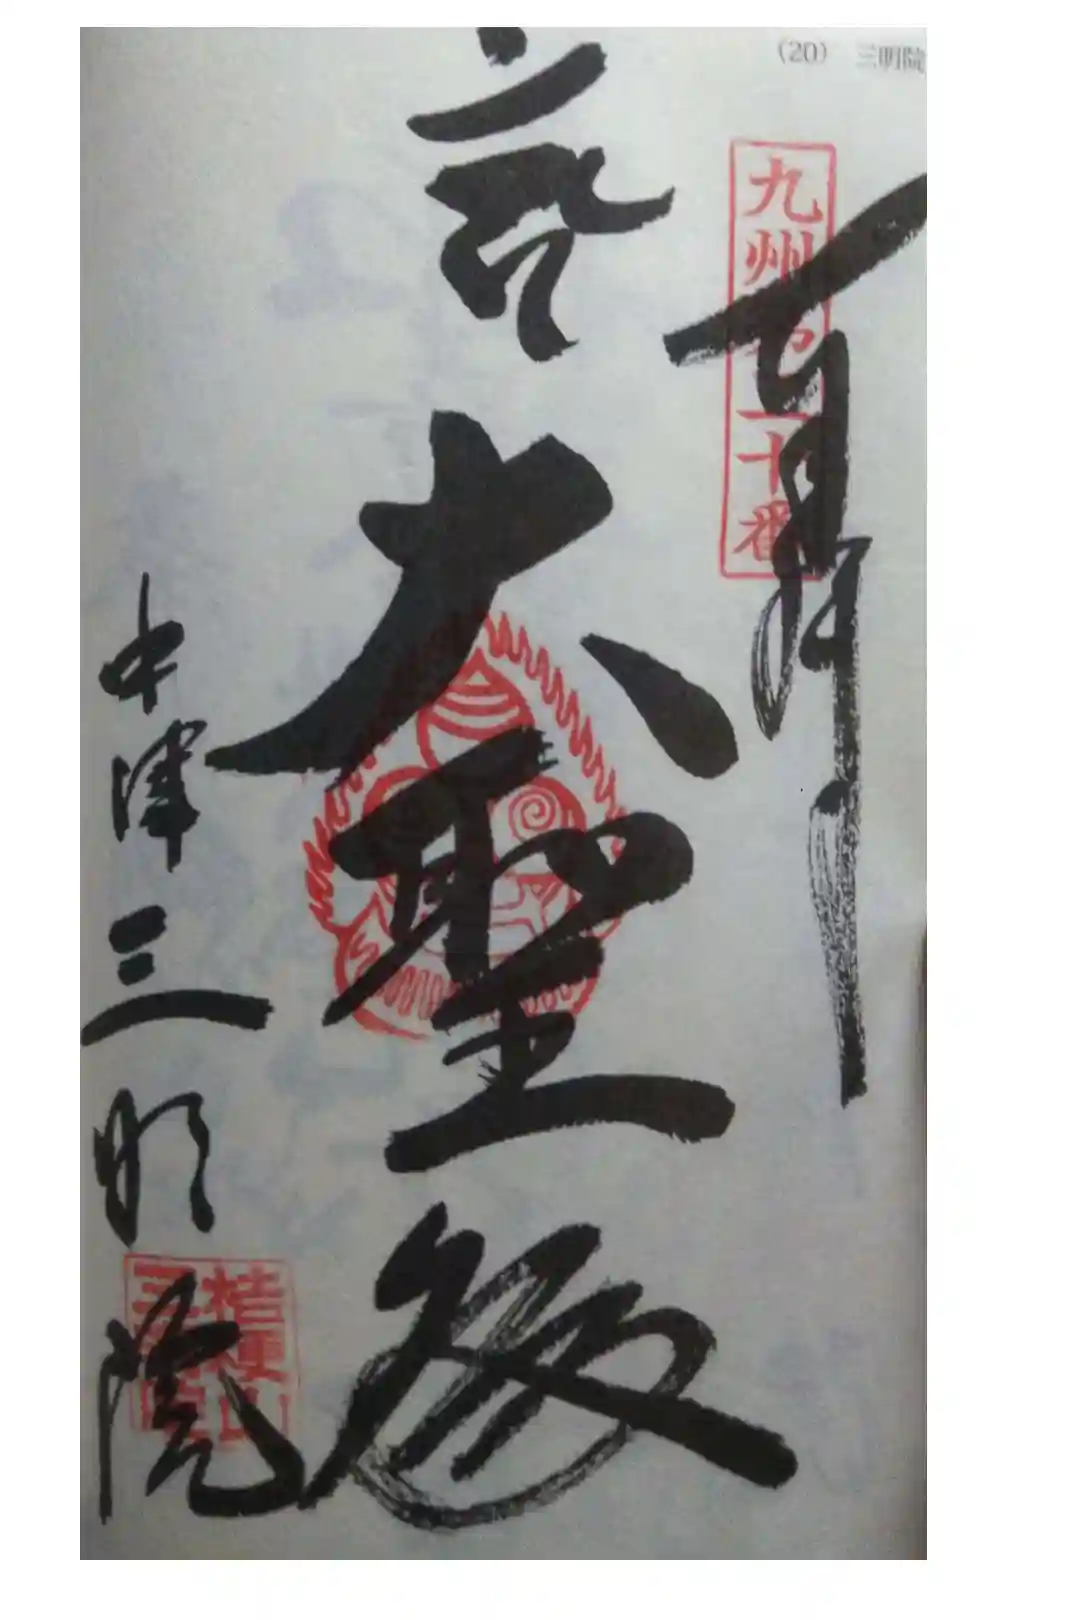 (20) 三明院
奉拝
九州第二十番
大聖殿
中津三明院
桔梗山
三明院